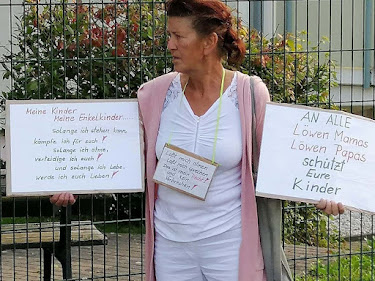 Meine Kinder
Meine Enkelkinder...
Solange ich stehen kann,
kämpfe ich für euch!
Solange ich atme,
verteidige ich euch!
und solange ich Lebe,
werde ich euch Lieben!
AN ALLE
Löwen Mamas
Löwen Papas
schützt
Eure
Kinder